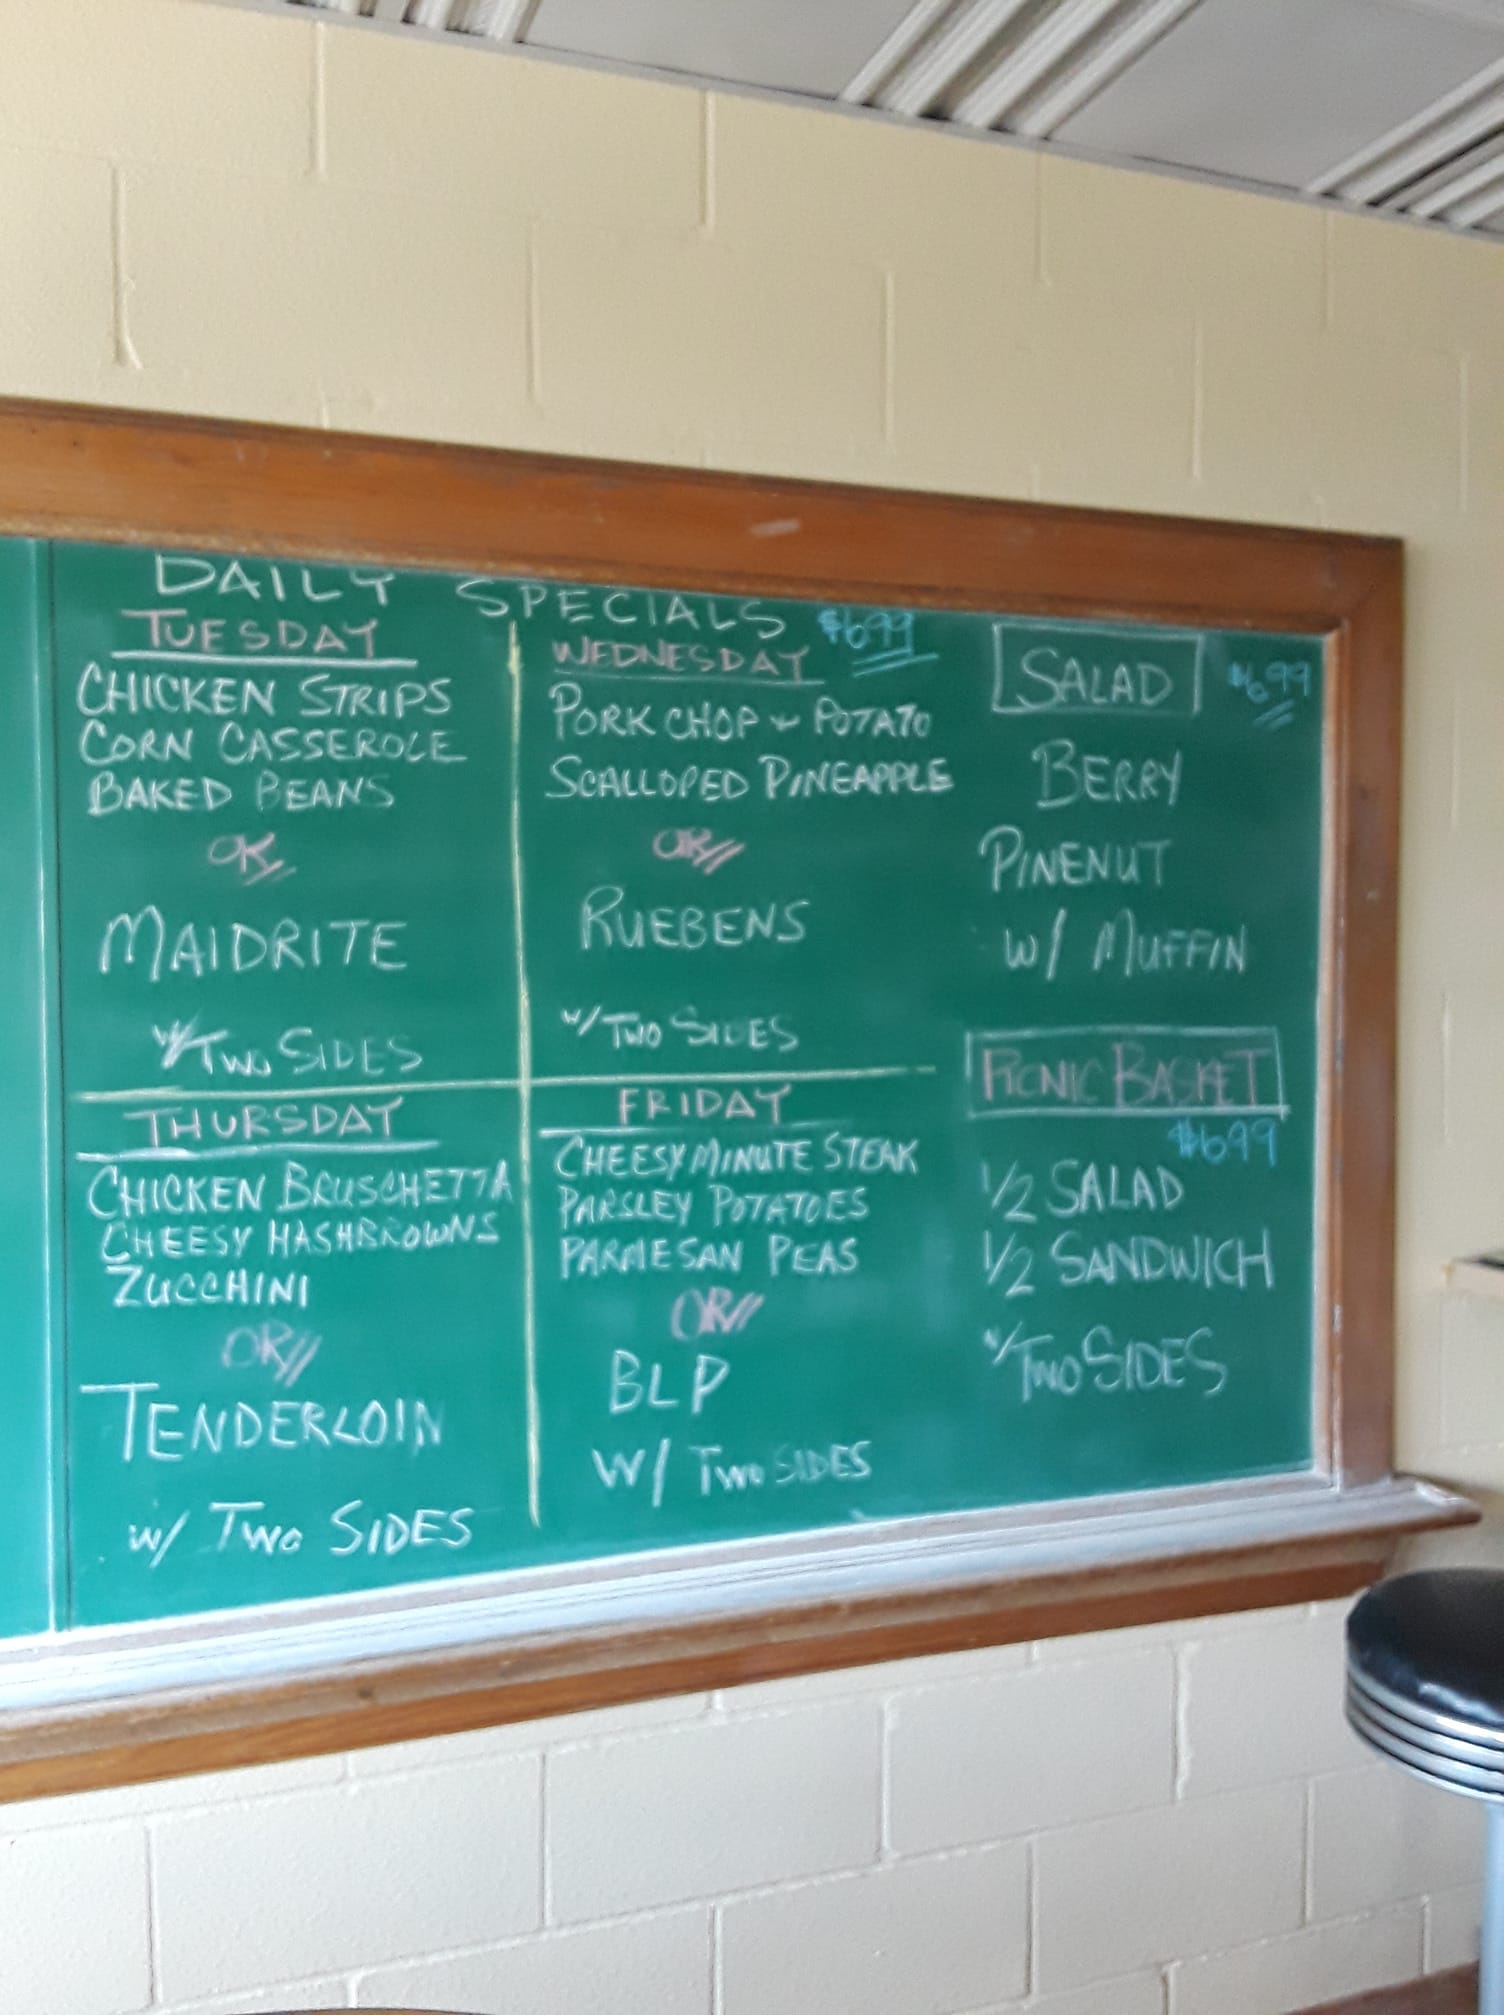 DAILY SPECIALS $6.99
TUESDAY
CHICKEN STRIPS
CORN CASSEROLE
BAKED BEANS
OR
MAIDRITE
W/ TWO SIDES
WEDNESDAY
PORK CHOP + POTATO
SCALLOPED PINEAPPLE
OR
RUEBENS
W/ TWO SIDES
THURSDAY
CHICKEN BRUSCHETTA
CHEESY HASHBROWNS
ZUCCHINI
OR
TENDERLOIN
W/ TWO SIDES
FRIDAY
CHEESY MINUTE STEAK
PARSLEY POTATOES
PARMESAN PEAS
OR
BLP
W/ TWO SIDES
SALAD $6.99
BERRY
PINENUT
W/ MUFFIN
PICNIC BASKET
$6.99
1/2 SALAD
1/2 SANDWICH
W/ TWO SIDES